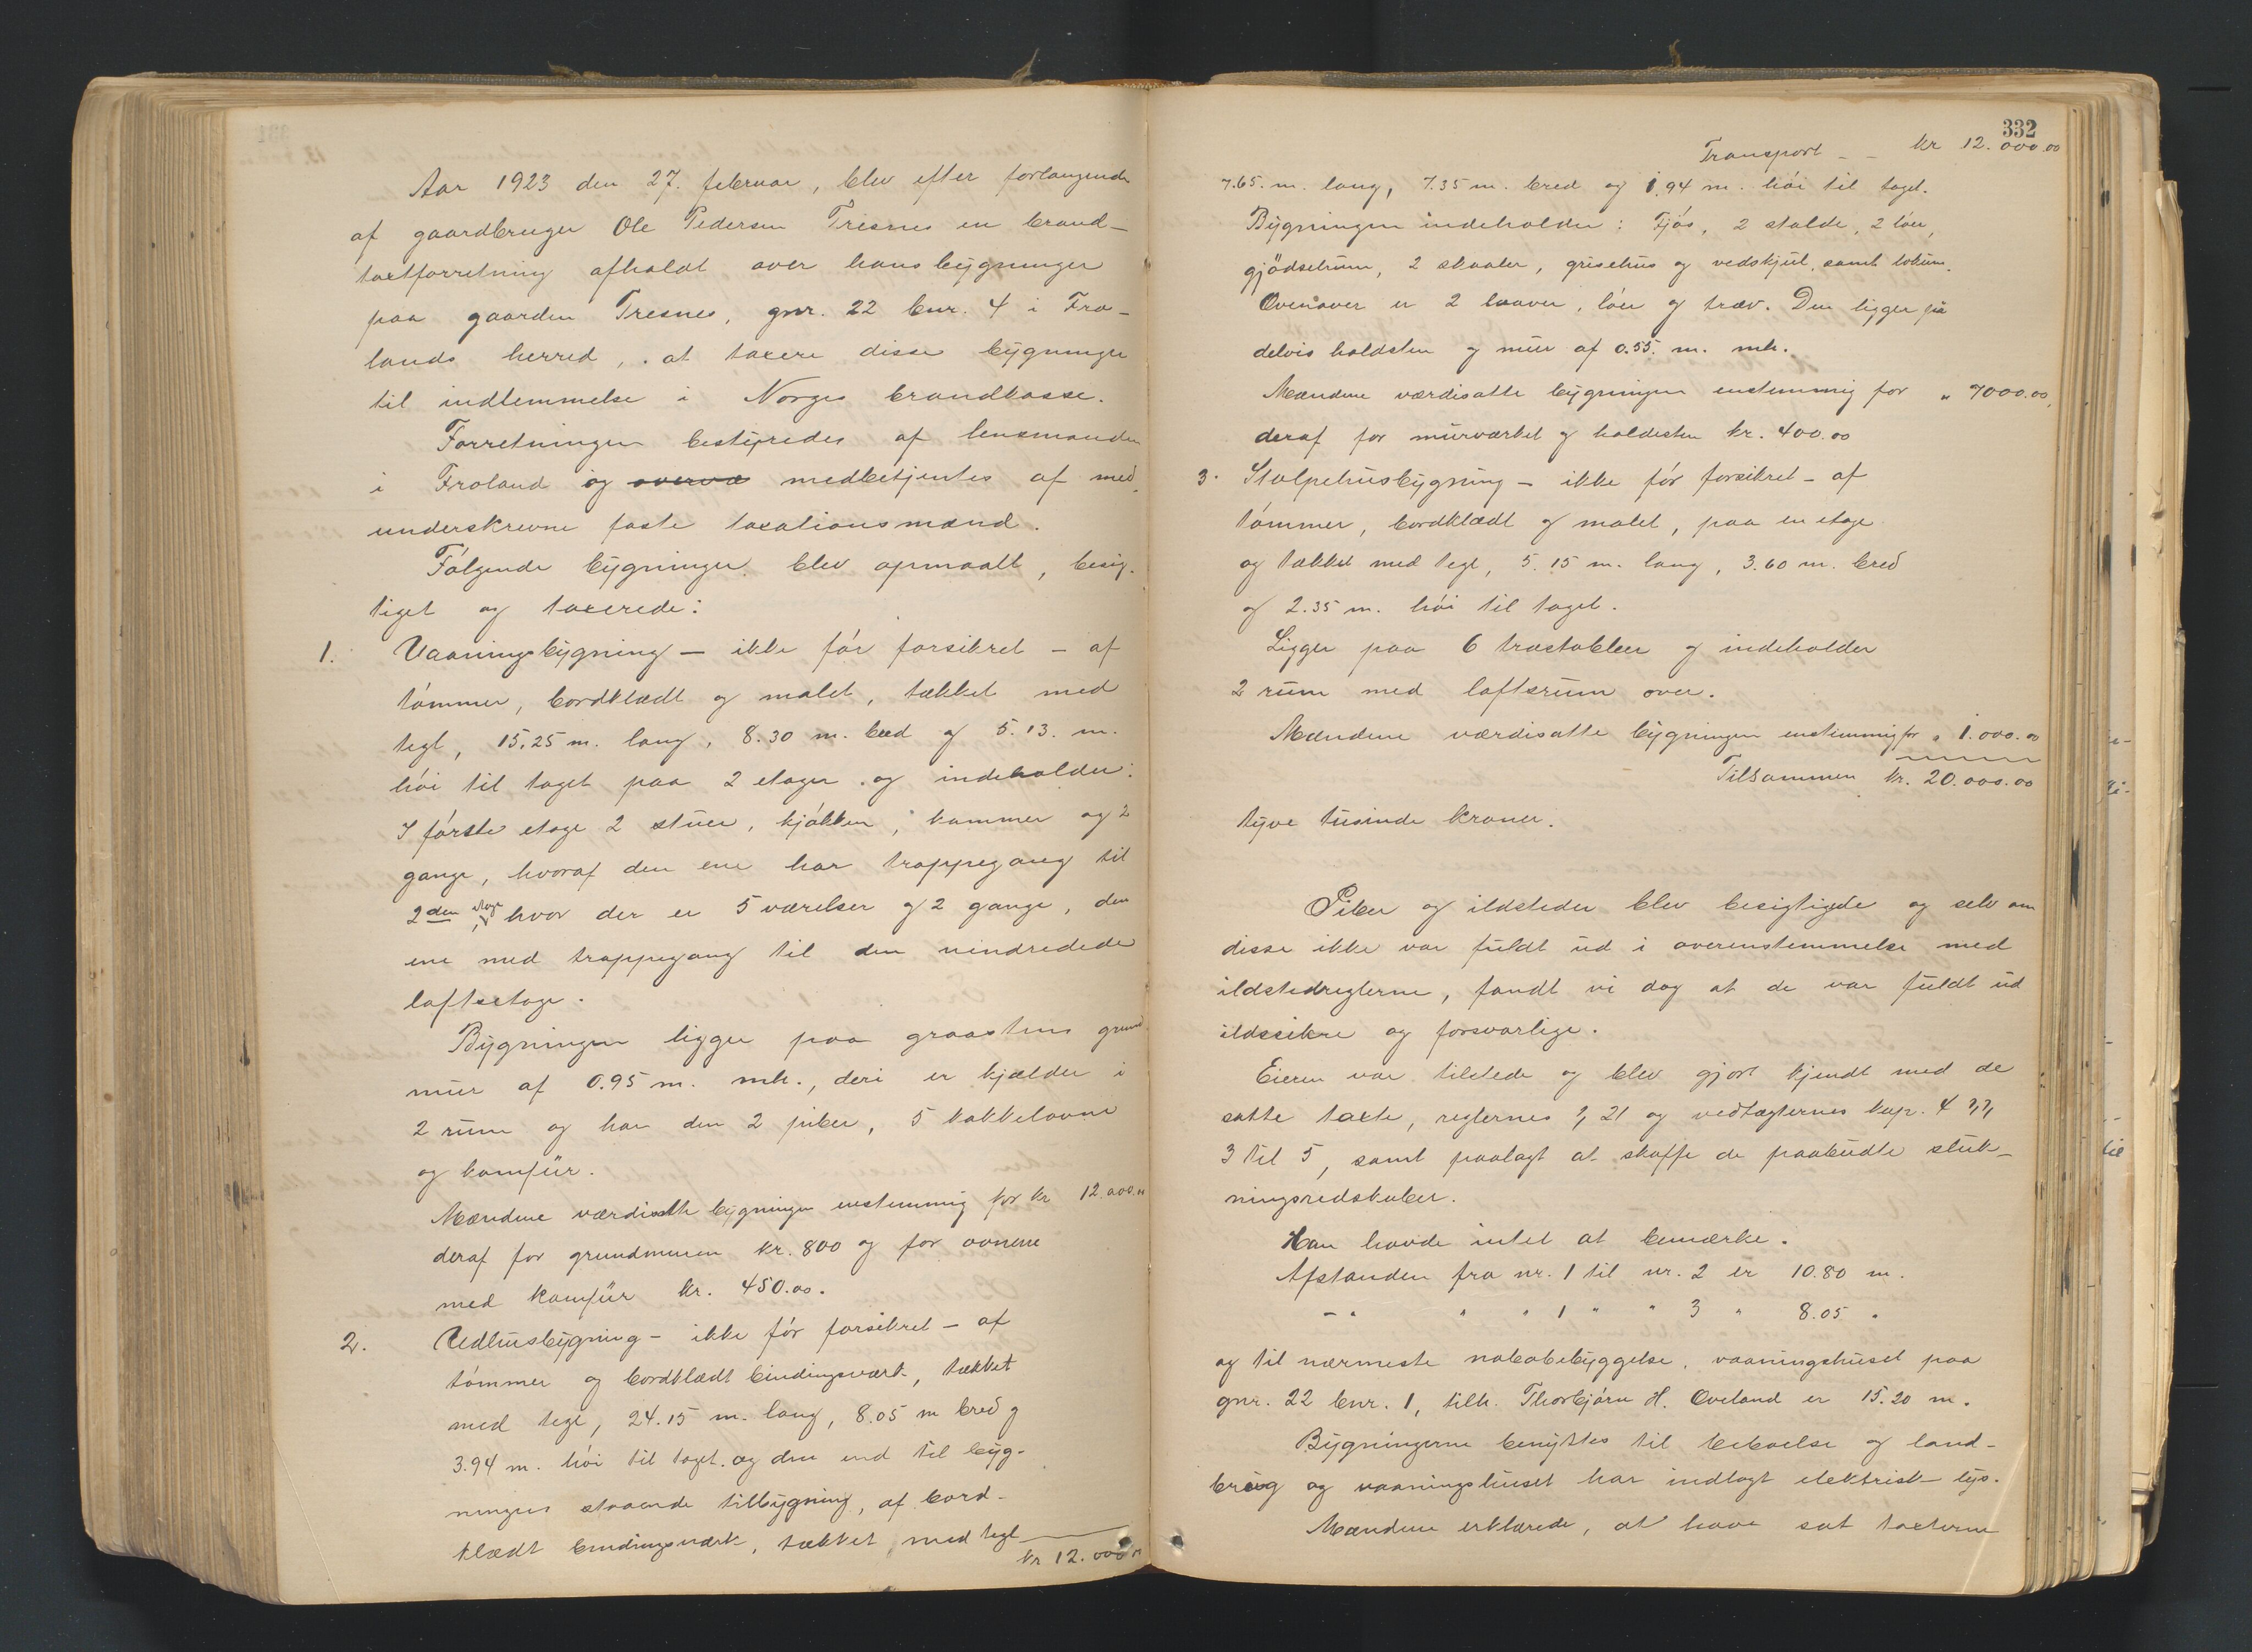 Aar 1923 den 27. februar, blev efter forlangende
af gaardbruger Ole Pedersen Tresnes en brand-
taxtforretning afholdt over hans bygninger
paa gaarden Tresnes, gnr. 22 bnr. 4 i Fro-
lands herred, at taxere disse bygninger
til indlemmelse i Norges brandkasse.
Forretningen bestyredes af lensmanden
i Froland og overvæ medbetjentes af med
underskrevne faste taxationsmænd.
Følgende bygninger blev opmaalt, besig-
tiget og taxerede:
1. Vaaningsbygning - ikke før forsikret - af
tømmer, bordklædt og malet, tækket med
tegl, 15.25 m. lang, 8.30 m. bred og 5.13. m.
høi til taget paa 2 etager og indeholder:
I første etage 2 stuer, kjøkken, kammer og 2
gange, hvoraf den ene har trappegang til
2den etage hvor der er 5 værelser og 2 gange, den
ene med trappegang til den uindredede
loftsetage.
Bygningen ligger paa graastens grund
mur af 0.95 m. mh., deri er kjælder i
2 rum og har den 2 piber, 5 kakkelovne
og komfür.
Mændene værdisatte bygningen enstemmig for kr 12.000.00
deraf for grundmuren kr. 800 og for ovnene
med komfür kr. 450.00.
2. Udhusbygning - ikke før forsikret - af
tømmer og bordklædt bindingsværk, tækket
med tegl, 24.15 m. lang, 8.05 m bred og
3.94 m. høi til taget og den ind til byg-
ningen staaende tilbygning, af bord-
klædt bindingsværk, tækket med tegl
kr 12.000.00
332
Transport - - kr 12.000.00
7.65. m. lang, 7.35 m. bred og 1.94 m. høi til taget.
Bygningen indeholder: Fjøs, 2 stalde, 2 løer,
gjødselrum, 2 skaaler, grisehus og vedskjul, samt lokum.
Ovenover er 2 laaver, løer og træv. Den ligger på
delvis holdsten og mur af 0.55. m. mh.
Mændene værdisatte bygningen enstemmig for " 7000.00,
deraf for murværket og holdesten kr. 400.00
3. Stolpehusbygning - ikke før forsikret - af
tømmer, bordklædt og malet, paa en etage
og tækket med tegl, 5.15 m. lang, 3.60 m. bred
og 2.35 m. høi til taget.
Ligger paa 6 træstabber og indeholder
2 rum med loftsrum over.
Mændene værdisatte bygningen enstemmig for " 1.000.00
Tilsammen kr. 20.000.00
tyve tusinde kroner.
Piber og ildsteder blev besigtigede og selv om
disse ikke var fuldt ud i overenstemmelse med
ildstedreglerne, fandt vi dog at de var fuldt ud
ildssikre og forsvarlige.
Eieren var tilstede og blev gjort kjendt med de
satte taxte, reglernes § 21 og vedtægternes kap. 4 §§
3 til 5, samt paalagt at skaffe de paabudte sluk-
ningsredskaber.
Han havde intet at bemærke.
Afstanden fra nr. 1 til nr. 2 er 10.80 m.
- " " " 1 " " 3 " 8.05 "
og til nærmeste nabobebyggelse, vaaningshuset paa
gnr. 22 bnr. 1, tilh. Thorbjørn H. Oveland er 15.20 m.
Bygningerne benyttes til beboelse og land-
brug og vaaningshuset har indlagt elektrisk lys.
Mændene erklærede, at have sat taxterne